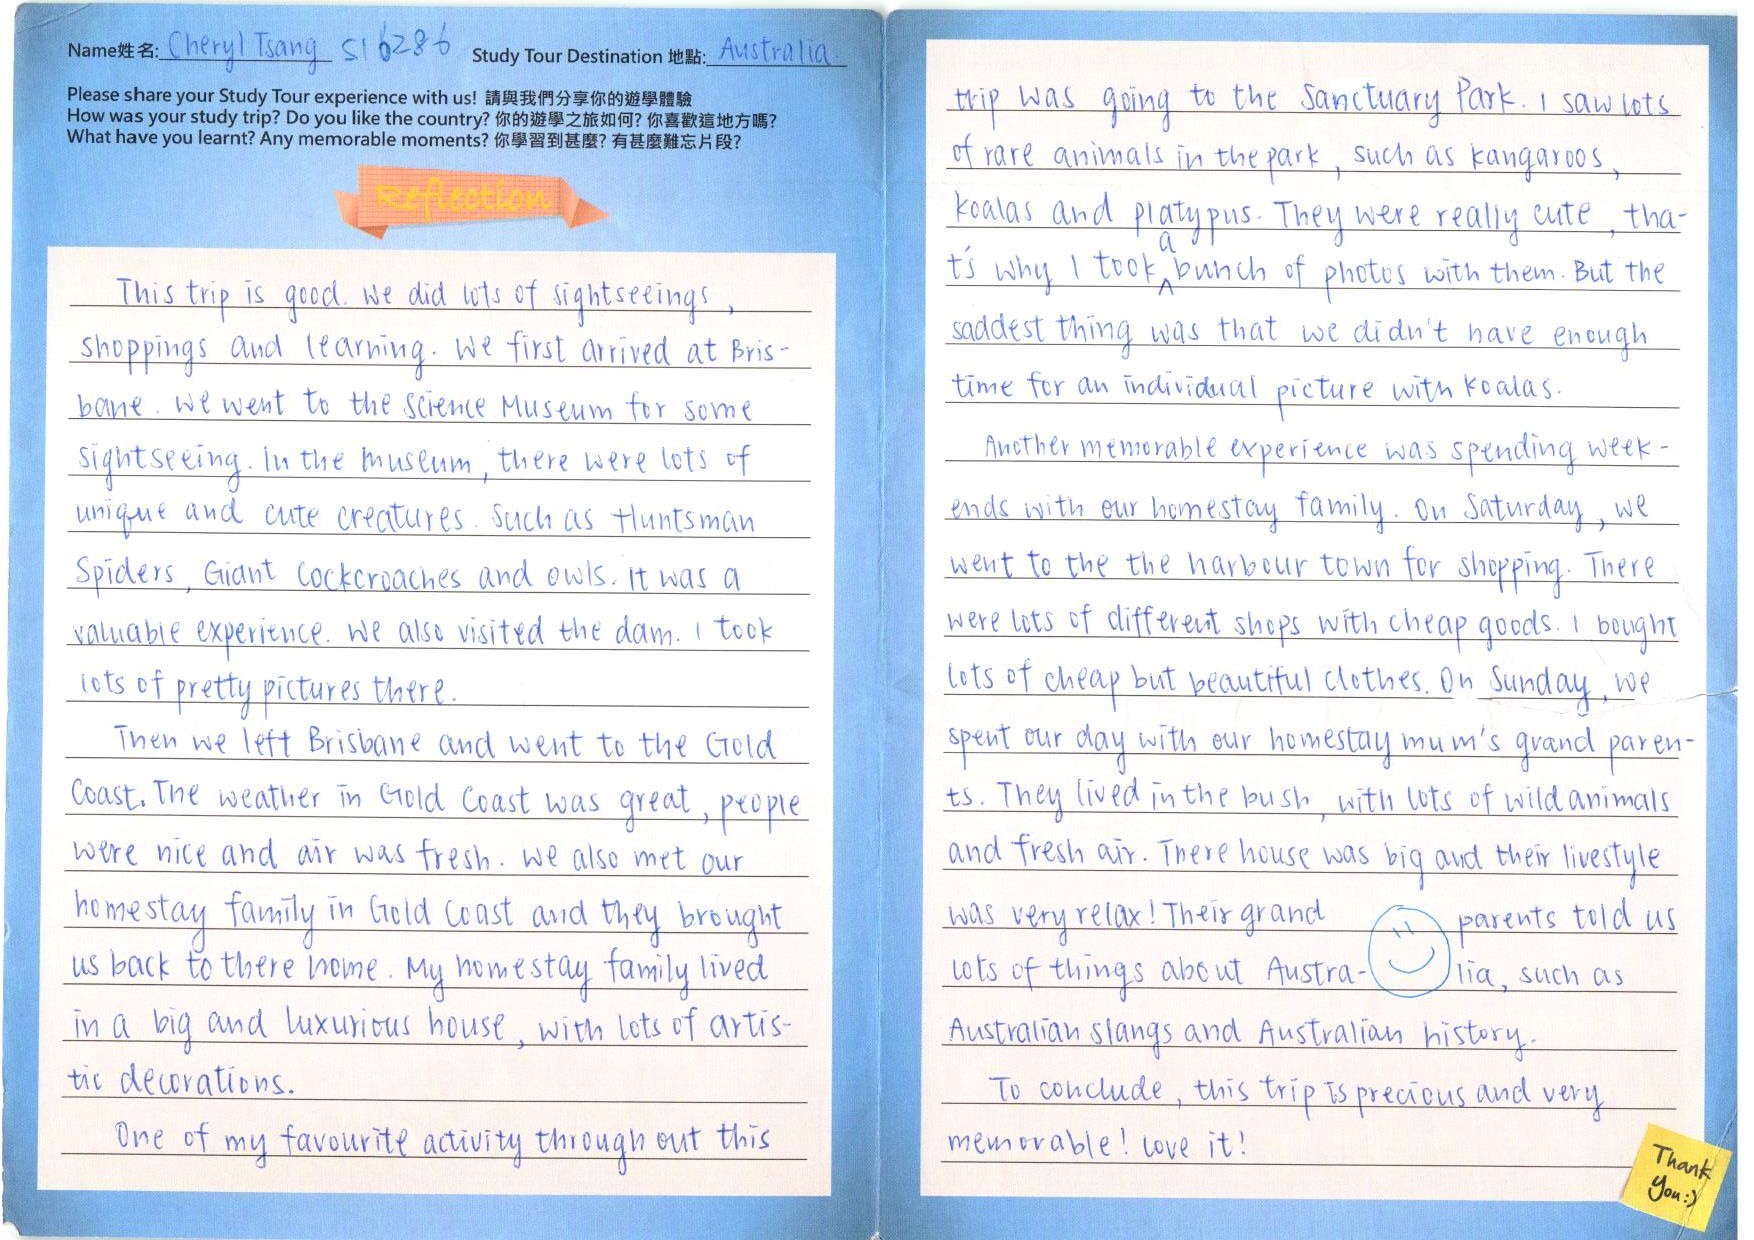 Name姓名: Cheryl Tsang S16286 Study Tour Destination 地點: Australia.
Please share your Study Tour experience with us! 請與我們分享你的遊學體驗
How was your study trip? Do you like the country? 你的遊學之旅如何? 你喜歡這地方嗎?
What have you learnt? Any memorable moments? 你學習到甚麼? 有甚麼難忘片段?
Reflection
This trip is good. We did lots of sightseeings,
shoppings and learning. We first arrived at Bris-
bane. We went to the Science Museum for some
sightseeing. In the museum, there were lots of
unique and cute creatures. Such as Huntsman
Spiders, Giant Cockcroaches and owls. It was a
valuable experience. We also visited the dam. I took
lots of pretty pictures there.
Then we left Brisbane and went to the Gold
Coast. The weather in Gold Coast was great, people
were nice and air was fresh. We also met our
homestay family in Gold Coast and they brought
us back to there home. My homestay family lived
in a big and luxurious house, with lots of artis-
tic decorations.
One of my favourite activity through out this
trip was going to the Sanctuary Park. I saw lots
of rare animals in the park, such as kangaroos,
koalas and platypus. They were really cute, tha-
t's why I took a bunch of photos with them. But the
saddest thing was that we didn't have enough
time for an individual picture with koalas.
Another memorable experience was spending week-
ends with our homestay family. On Saturday, we
went to the the harbour town for shopping. There
were lots of different shops with cheap goods. I bought
lots of cheap but beautiful clothes. On Sunday, we
spent our day with our homestay mum's grand paren-
ts. They lived in the bush, with lots of wild animals
and fresh air. There house was big and their livestyle
was very relax! Their grand parents told us
lots of things about Austra-lia, such as
Australian slangs and Australian history.
To conclude, this trip is precious and very
memorable! Love it!
Thank
You:)